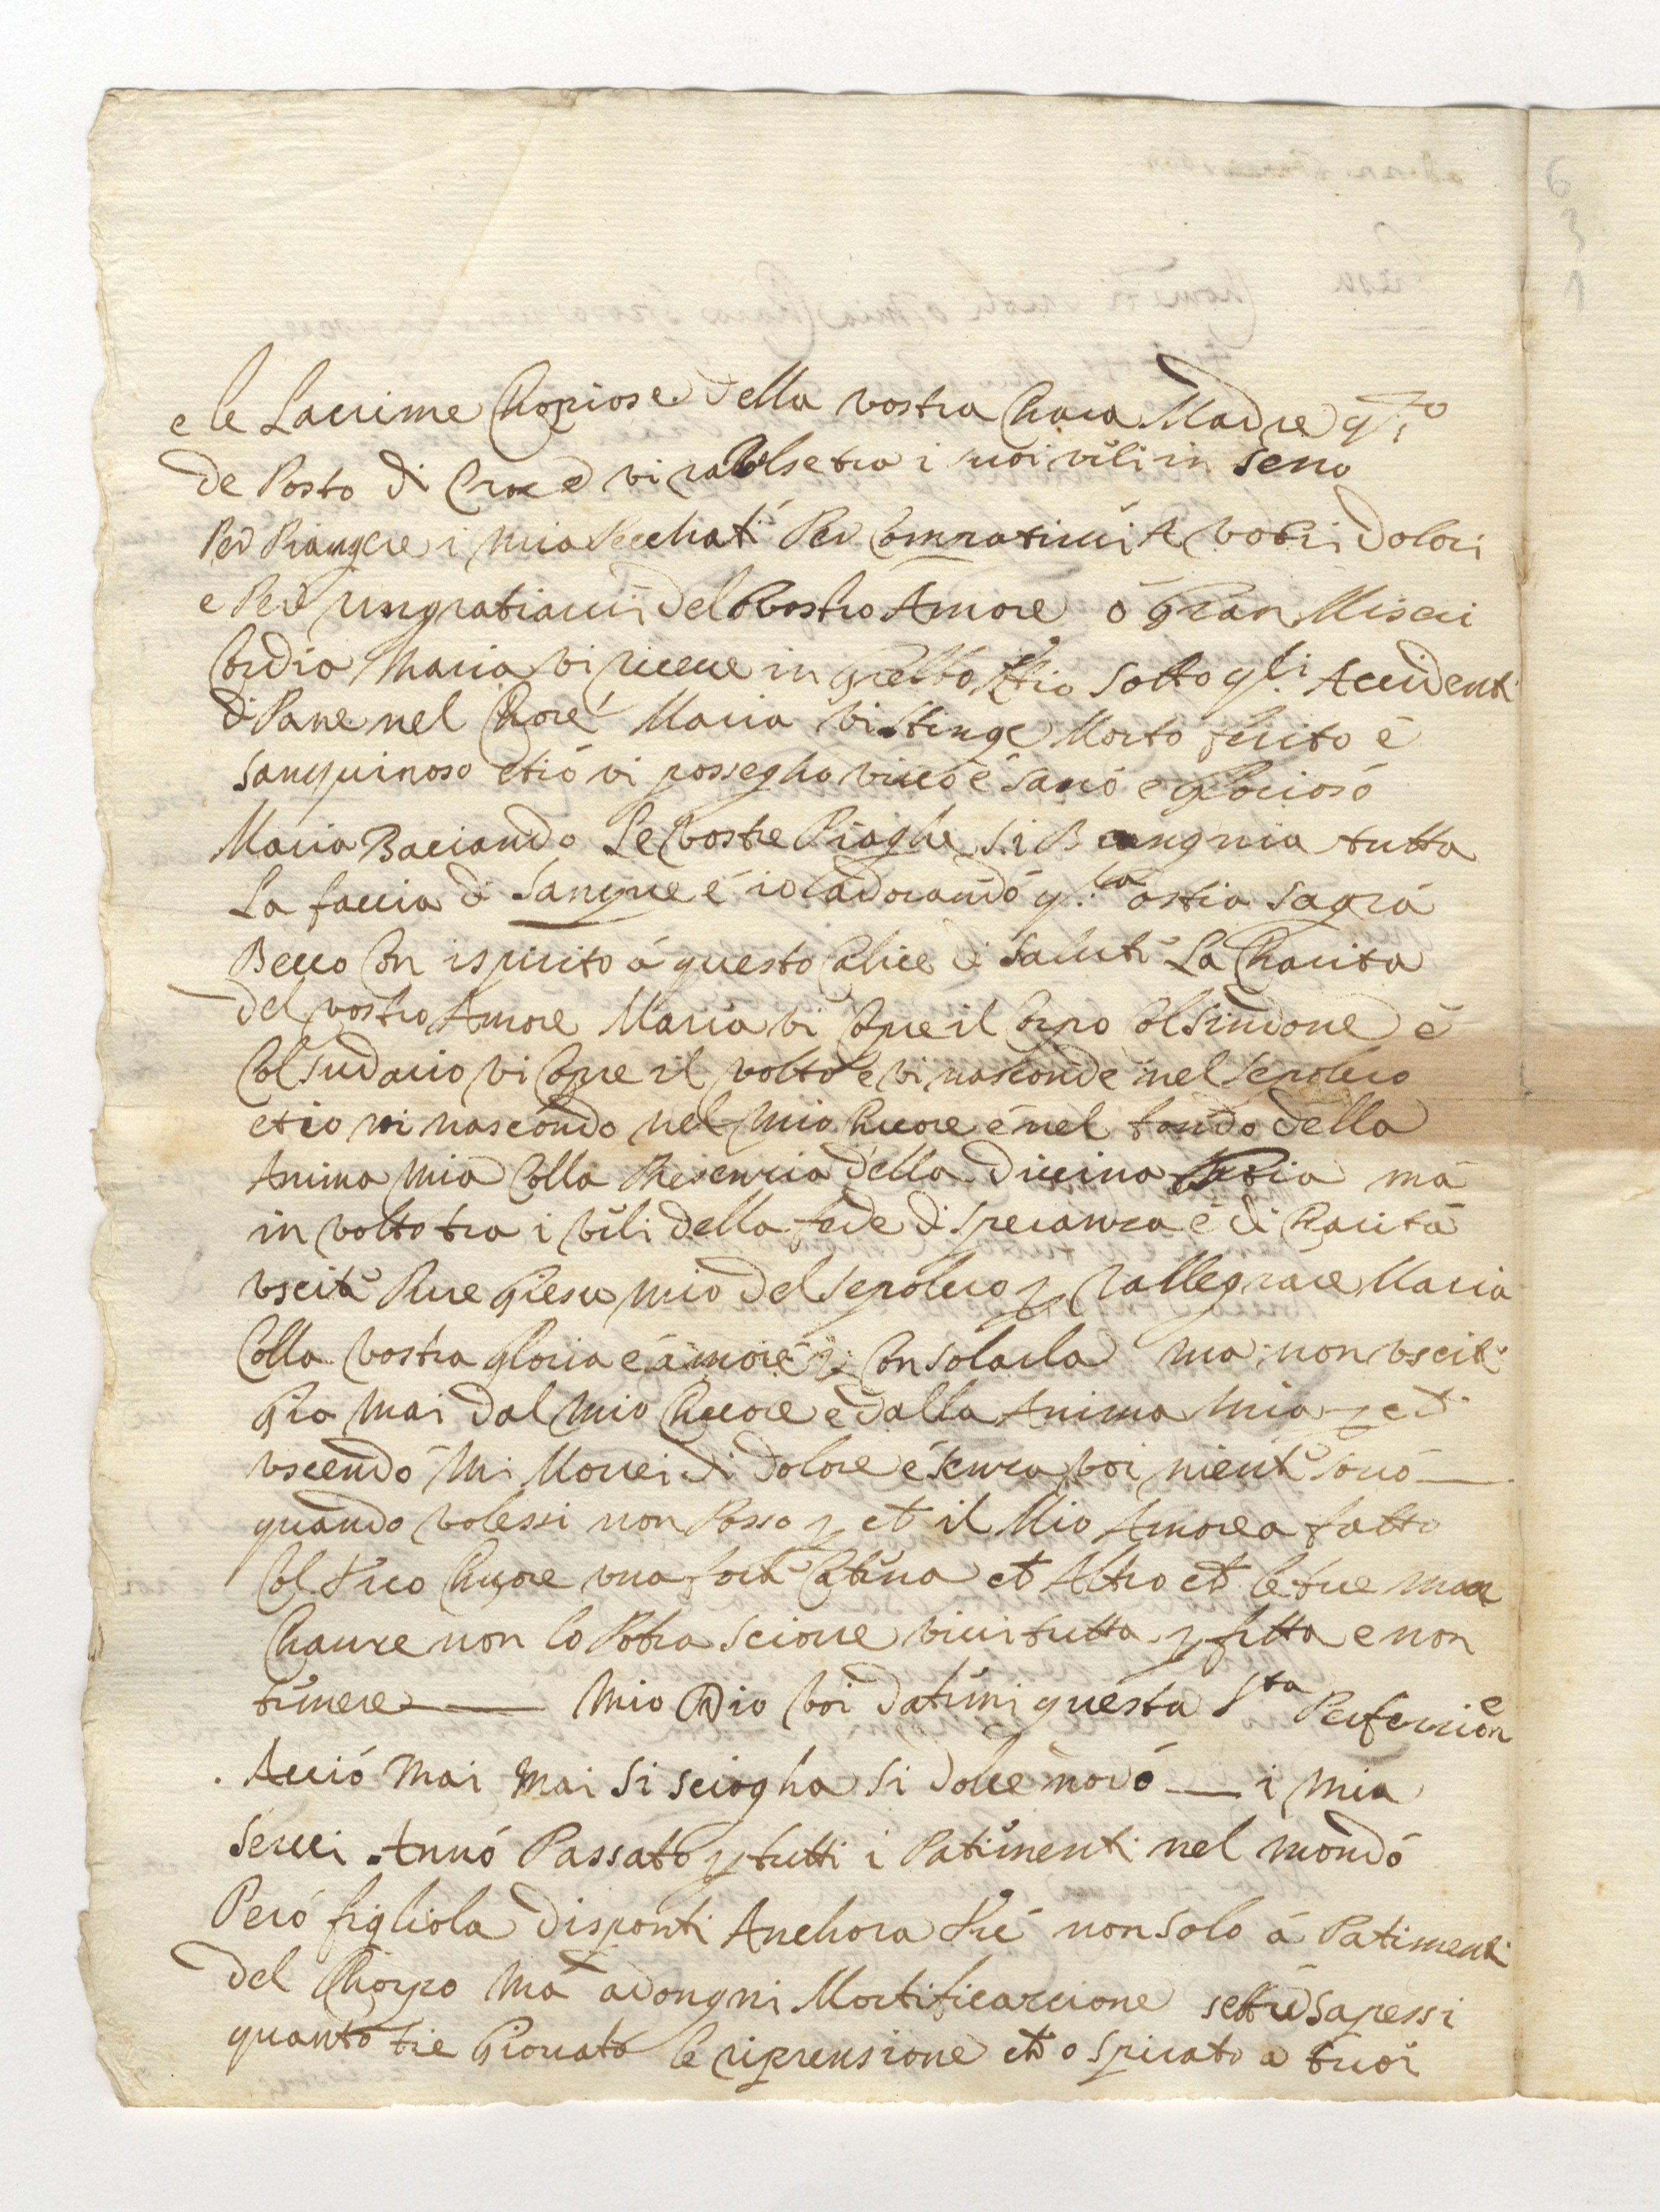 e le Lacrime Chopiose della vostra Chara Madre q.to
de Posto di Croce vi racolse tra i suoi vili in seno
Per Piangere i mia Pecchati Per Compatirvi A vostri dolori
e Per ringratiarvi del Vostro Amore ó Gran Miseri
Cordia Maria vi riceve in grebbo Etio sotto gli Accidenti
di Pane nel Chore Maria vi stinge Morto ferito é
sanguinoso etió vi possegho vivo é sano é glorioso
Maria Baciando Le vostre Piaghe si Bangnia tutta
La faccia di sangue é io adorando q.ta ostia sagra
Bevo Con ispirito á questo Calice di salute La Charita
del vostro Amore Maria vi Copre il Corpo Col sindone é
Col sudario vi Copre il volto e vi nasconde nel sepolcro
etio vi nascondo nel mio Chuore é nel fondo della
Anima mia Colla Presenzia della divina Ma
in volto tra i vili della fede di speranza é di Charitá
uscite Pure Giesu mio del sepolcro p rallegrare Maria
Colla vostra gloria é amore p Consolarla ma non uscite
Gia mai dal mio Chuore e dalla Anima mia p ch
uscendo Mi Morrei di dolore é senza voi niente sono
quando volessi non Posso p ch il Mio Amore a fatto
Col tuo Chuore una forte Catena ch Altro ch le tue man
Chanze non lo Potra sciorre vivi tutta p fetta e non
temere Mio Dio voi datemi questa S.ta Perfezione
Acció Mai Mai si sciogha si dolce nodó i mia
servi Annó Passato p tutti i Patimenti nel mondó
Peró figliola disponti Anchora tú non solo á Patimenti
del Chorpo Ma ad ongni Mortificazzione se tu sapessi
quanto tie Giovato le riprensione ch o spirato a tuoi